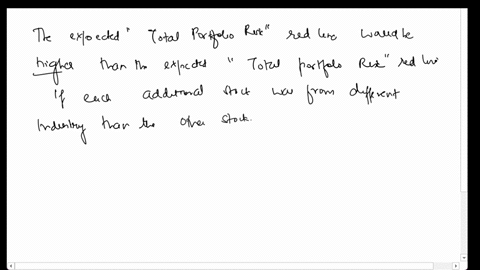 The expected "Total Portfolio Risk" red line would be
higher than the expected "Total portfolio Risk" red line
if each additional stock was from different
industry than the other stock.